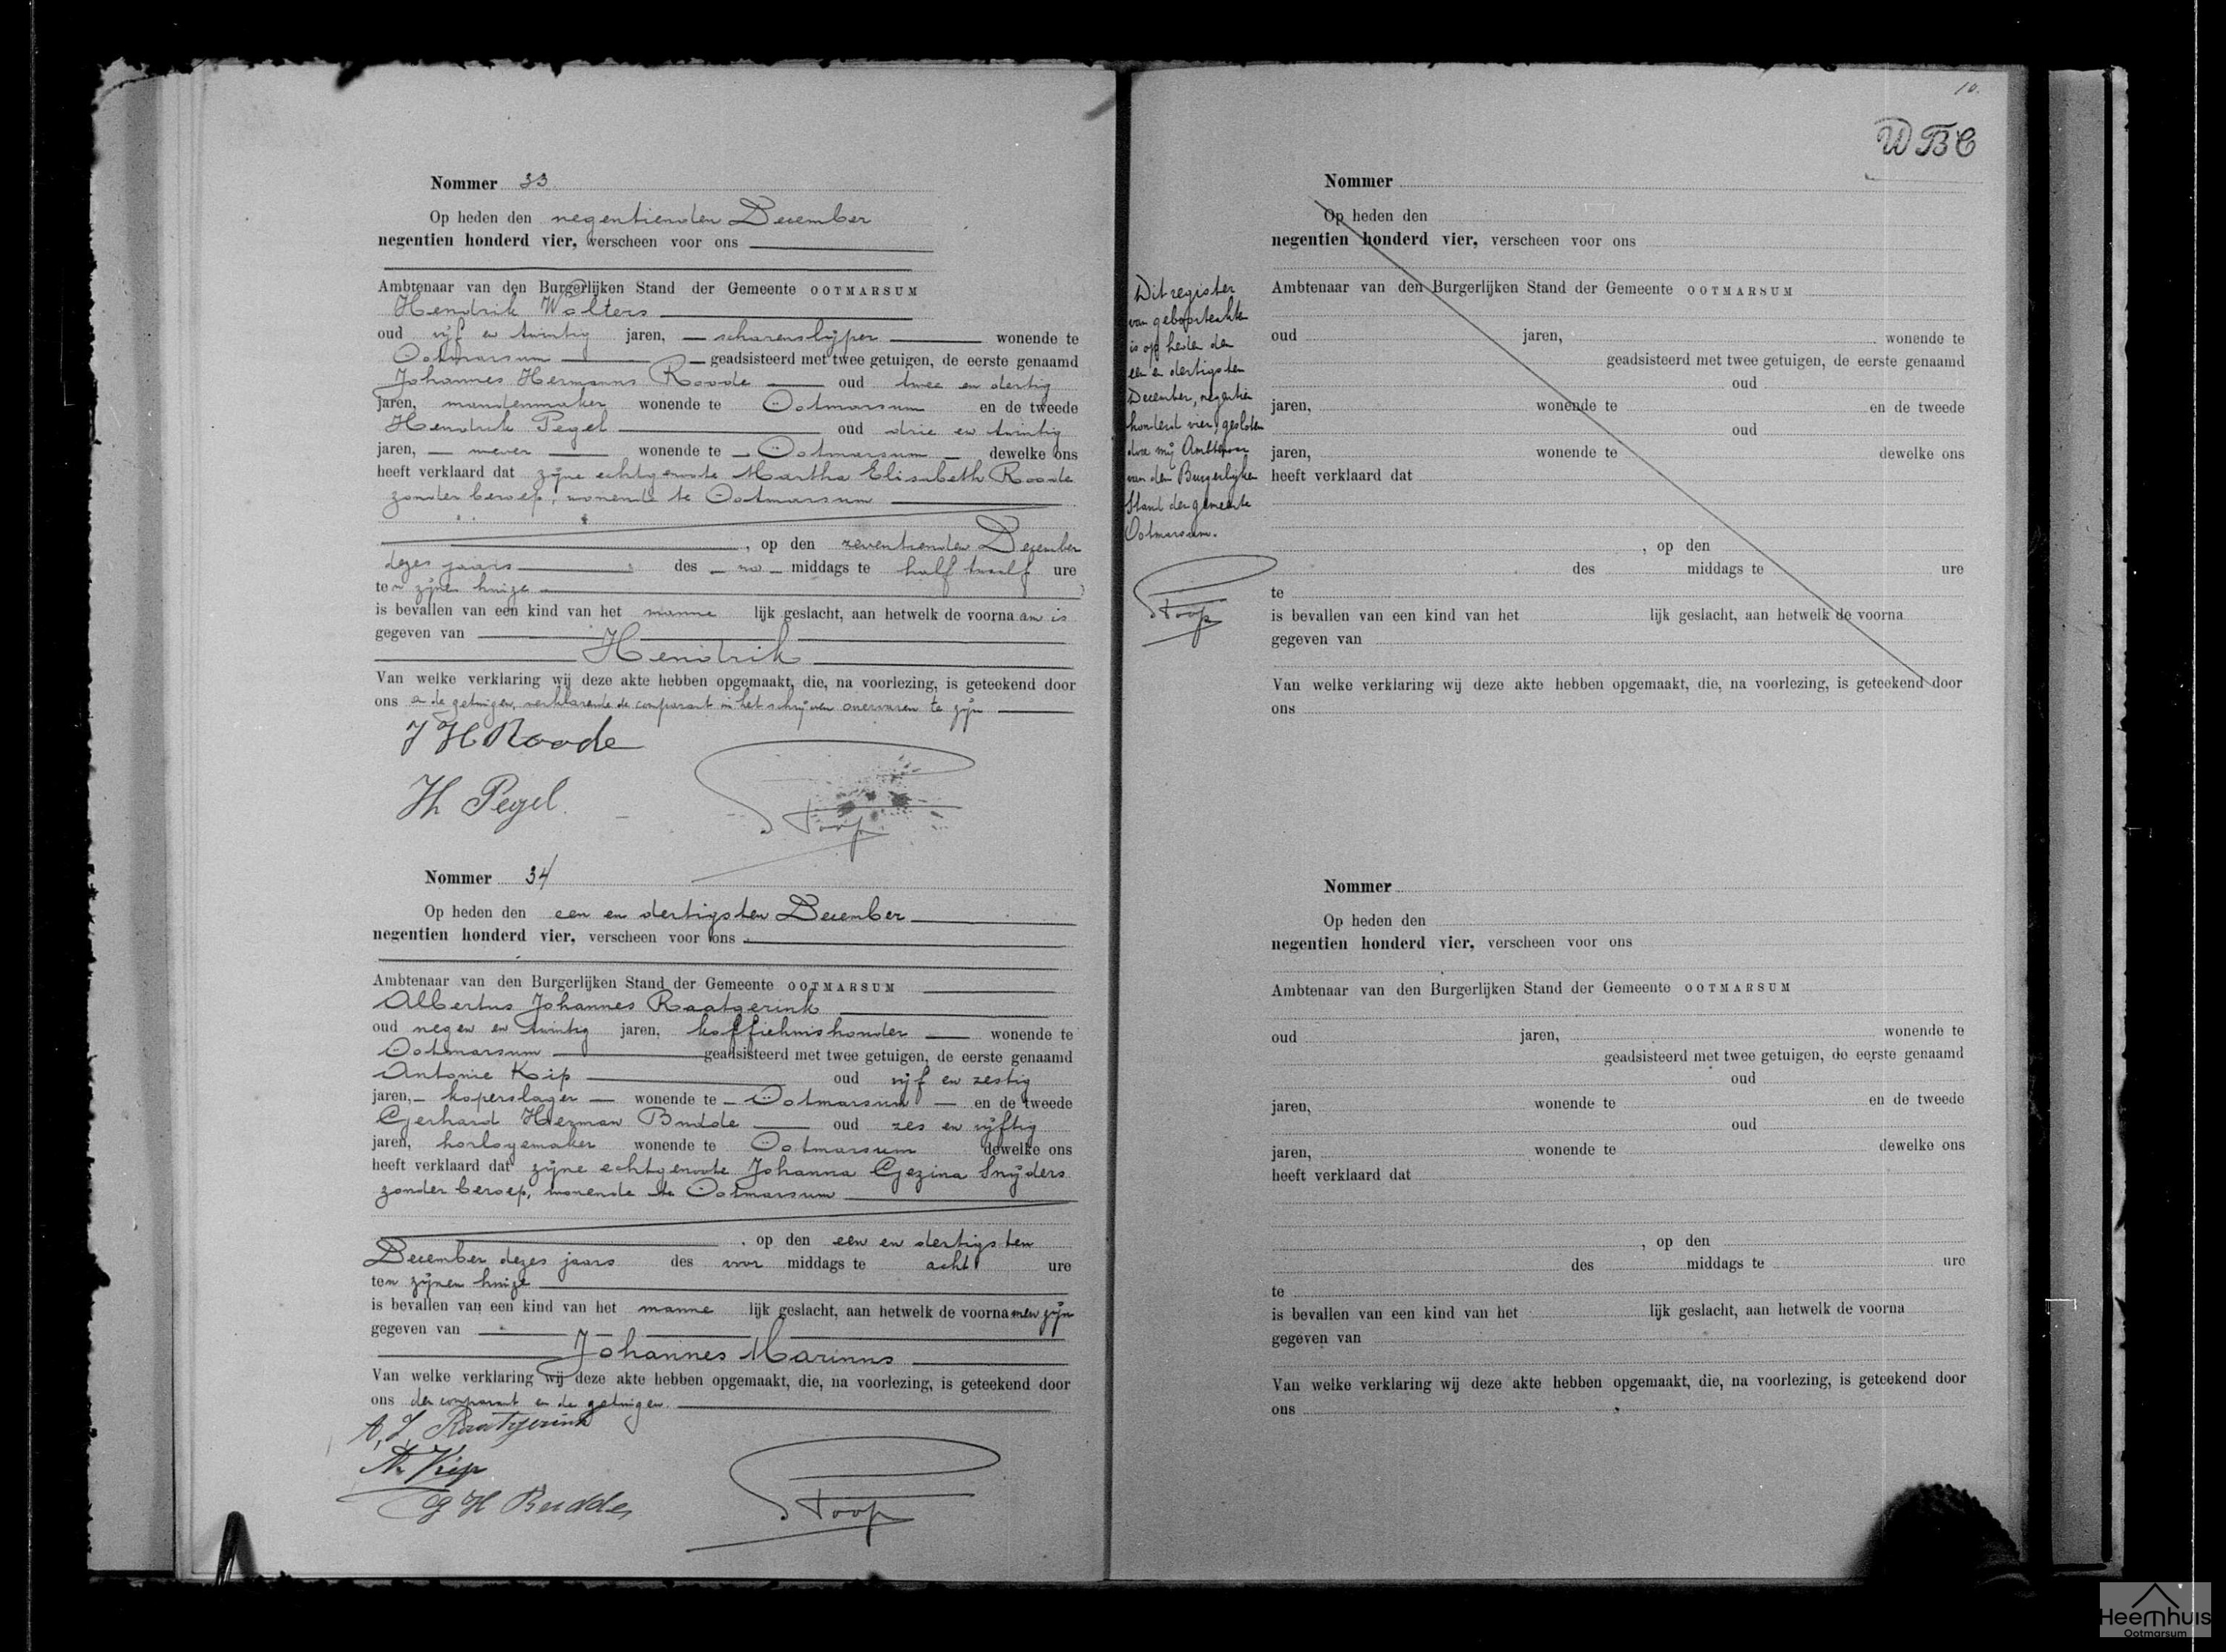 Nommer 33
Op heden den negentienden December
negentien honderd vier, verscheen voor ons
Ambtenaar van den Burgerlijken Stand der Gemeente OOTMARSUM
Hendrik Wolters
oud vijf en twintig jaren, scharenslijper wonende te
Ootmarsum geadsisteerd met twee getuigen, de eerste genaamd
Johannes Hermanus Roode oud twee en dertig
jaren, mandenmaker wonende te Ootmarsum en de tweede
Hendrik Pegel oud drie en twintig
jaren, wever wonende te Ootmarsum dewelke ons
heeft verklaard dat zijne echtgenoote Martha Elisabeth Roode
zonder beroep, wonende te Ootmarsum
, op den zeventienden December
dezes jaars des na middags te half twaalf ure
ten zijnen huize
is bevallen van een kind van het manne lijk geslacht, aan hetwelk de voornaam is
gegeven van
Hendrik
Van welke verklaring wij deze akte hebben opgemaakt, die, na voorlezing, is geteekend door
ons en de getuigen, verklarende de comparant in het schrijven onervaren te zijn
J H Roode
H Pegel
Stoop
Nommer 34
Op heden den een en dertigsten December
negentien honderd vier, verscheen voor ons
Ambtenaar van den Burgerlijken Stand der Gemeente OOTMARSUM
Albertus Johannes Raatgerink
oud negen en twintig jaren, koffiehuishouder wonende te
Ootmarsum geadsisteerd met twee getuigen, de eerste genaamd
Antonie Kip oud vijf en zestig
jaren, koperslager wonende te Ootmarsum en de tweede
Gerhard Herman Budde oud zes en vijftig
jaren, horlogemaker wonende te Ootmarsum dewelke ons
heeft verklaard dat zijne echtgenoote Johanna Gezina Snijders
zonder beroep, wonende te Ootmarsum
, op den een en dertigsten
December dezes jaars des voor middags te acht ure
ten zijnen huize
is bevallen van een kind van het manne lijk geslacht, aan hetwelk de voornamen zijn
gegeven van
Johannes Marinus
Van welke verklaring wij deze akte hebben opgemaakt, die, na voorlezing, is geteekend door
ons den comparant en de getuigen.
A. J. Raatgerink
A Kip
G H Budde
Stoop
10.
WBC
Dit register
van geboorteakten
is op heden den
een en dertigsten
December, negentien
honderd vier, gesloten
door mij Ambtenaar
van den Burgerlijken
Stand der gemeente
Ootmarsum.
Stoop
Nommer
Op heden den
negentien honderd vier, verscheen voor ons
Ambtenaar van den Burgerlijken Stand der Gemeente OOTMARSUM
oud jaren, wonende te
geadsisteerd met twee getuigen, de eerste genaamd
oud
jaren, wonende te en de tweede
oud
jaren, wonende te dewelke ons
heeft verklaard dat
, op den
des middags te ure
te
is bevallen van een kind van het lijk geslacht, aan hetwelk de voorna
gegeven van
Van welke verklaring wij deze akte hebben opgemaakt, die, na voorlezing, is geteekend door
ons
Nommer
Op heden den
negentien honderd vier, verscheen voor ons
Ambtenaar van den Burgerlijken Stand der Gemeente OOTMARSUM
oud jaren, wonende te
geadsisteerd met twee getuigen, de eerste genaamd
oud
jaren, wonende te en de tweede
oud
jaren, wonende te dewelke ons
heeft verklaard dat
, op den
des middags te ure
te
is bevallen van een kind van het lijk geslacht, aan hetwelk de voorna
gegeven van
Van welke verklaring wij deze akte hebben opgemaakt, die, na voorlezing, is geteekend door
ons
Heemhuis
Ootmarsum